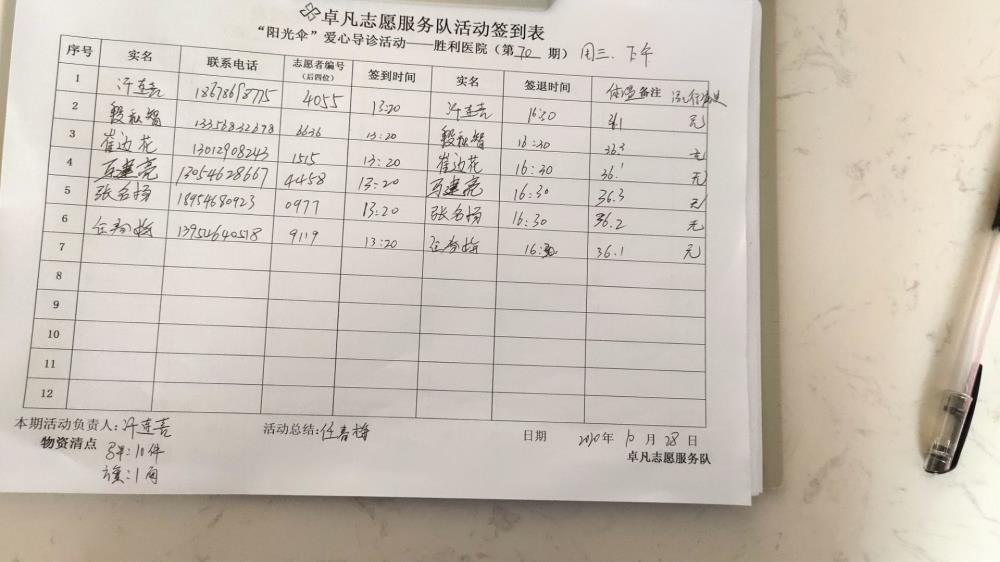 卓凡志愿服务队活动签到表
“阳光伞”爱心导诊活动——胜利医院（第70期）周三.下午
序号 实名 联系电话 志愿者编号（后四位） 签到时间 实名 签退时间 体温备注
1 许连吉 18678698775 4055 13:20 许连吉 16:30 36.1 无
2 段秋智 13356832678 6636 13:20 段秋智 16:30 36.3 无
3 崔边花 13012908243 1515 13:20 崔边花 16:30 36.1 无
4 建亮 13054628667 4458 13:20 建亮 16:30 36.3 无
5 张名扬 18954680923 0977 13:20 张名扬 16:30 36.2 无
6 任春梅 13954640518 9119 13:20 任春梅 16:30 36.1 无
7
8
9
10
11
12
本期活动负责人:许连吉 活动总结:任春梅 日期 2020年10月28日
物资清点 卓凡志愿服务队
马甲:10件
:1面